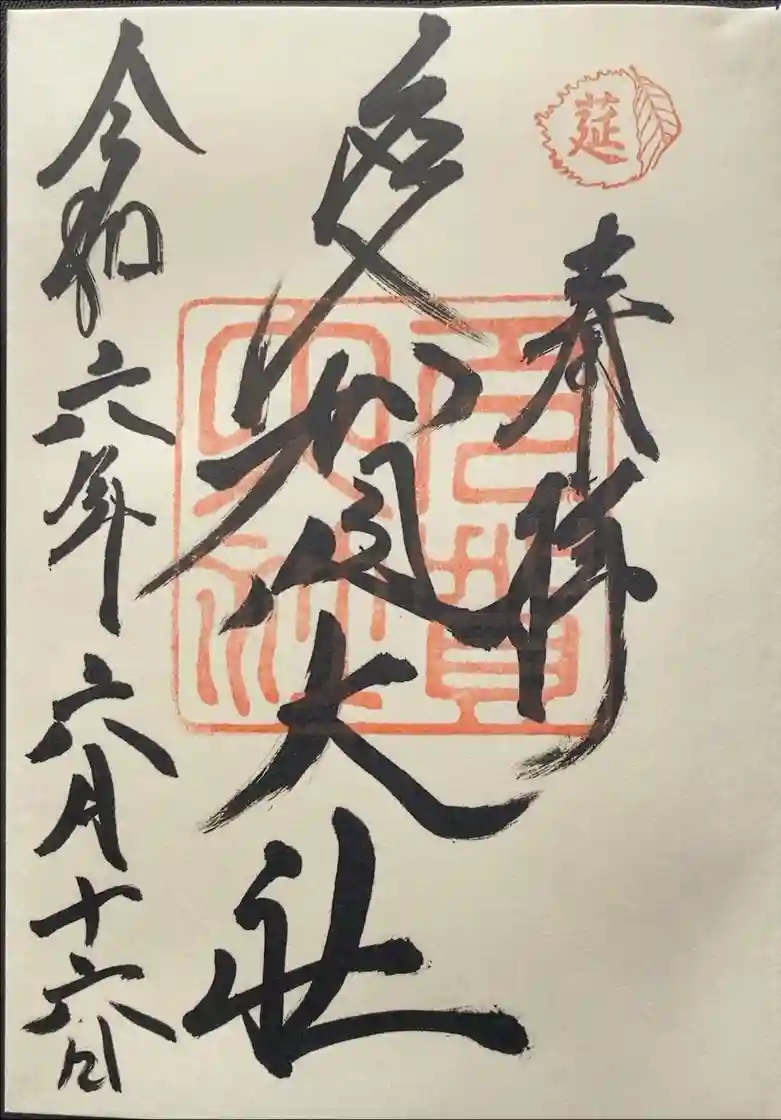 莚
奉拝
多賀大社
多賀大社
令和六年六月十六日